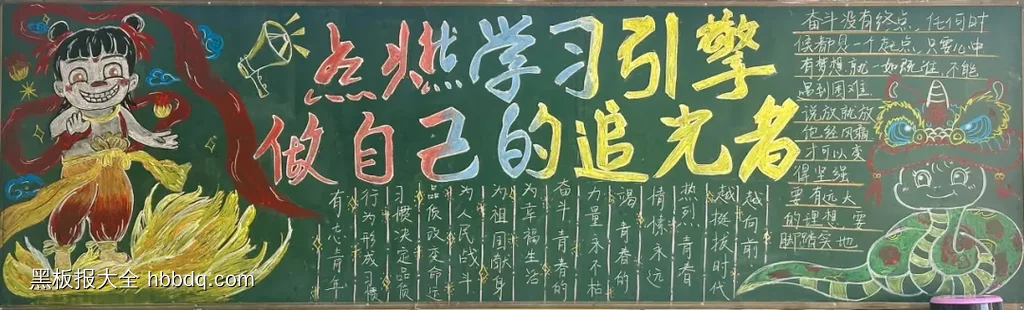 点燃学习引擎
做自己的追光者
有志青年
行为形成习惯
习惯决定品质
品质改变命运
为人民战斗
为祖国献身
为幸福生活
奋斗青春的
力量永不枯
竭 青春的
情愫永远
热烈青春
越挺拔时代
越向前
奋斗没有终点,任何时
候都是一个起点,只要心中
有梦想就一如既往,不能
遇到困难
说放就放
风痛
才可以变
得坚强
要有远大
的理想,要
脚踏实地
黑板报大全 hbbdq.com